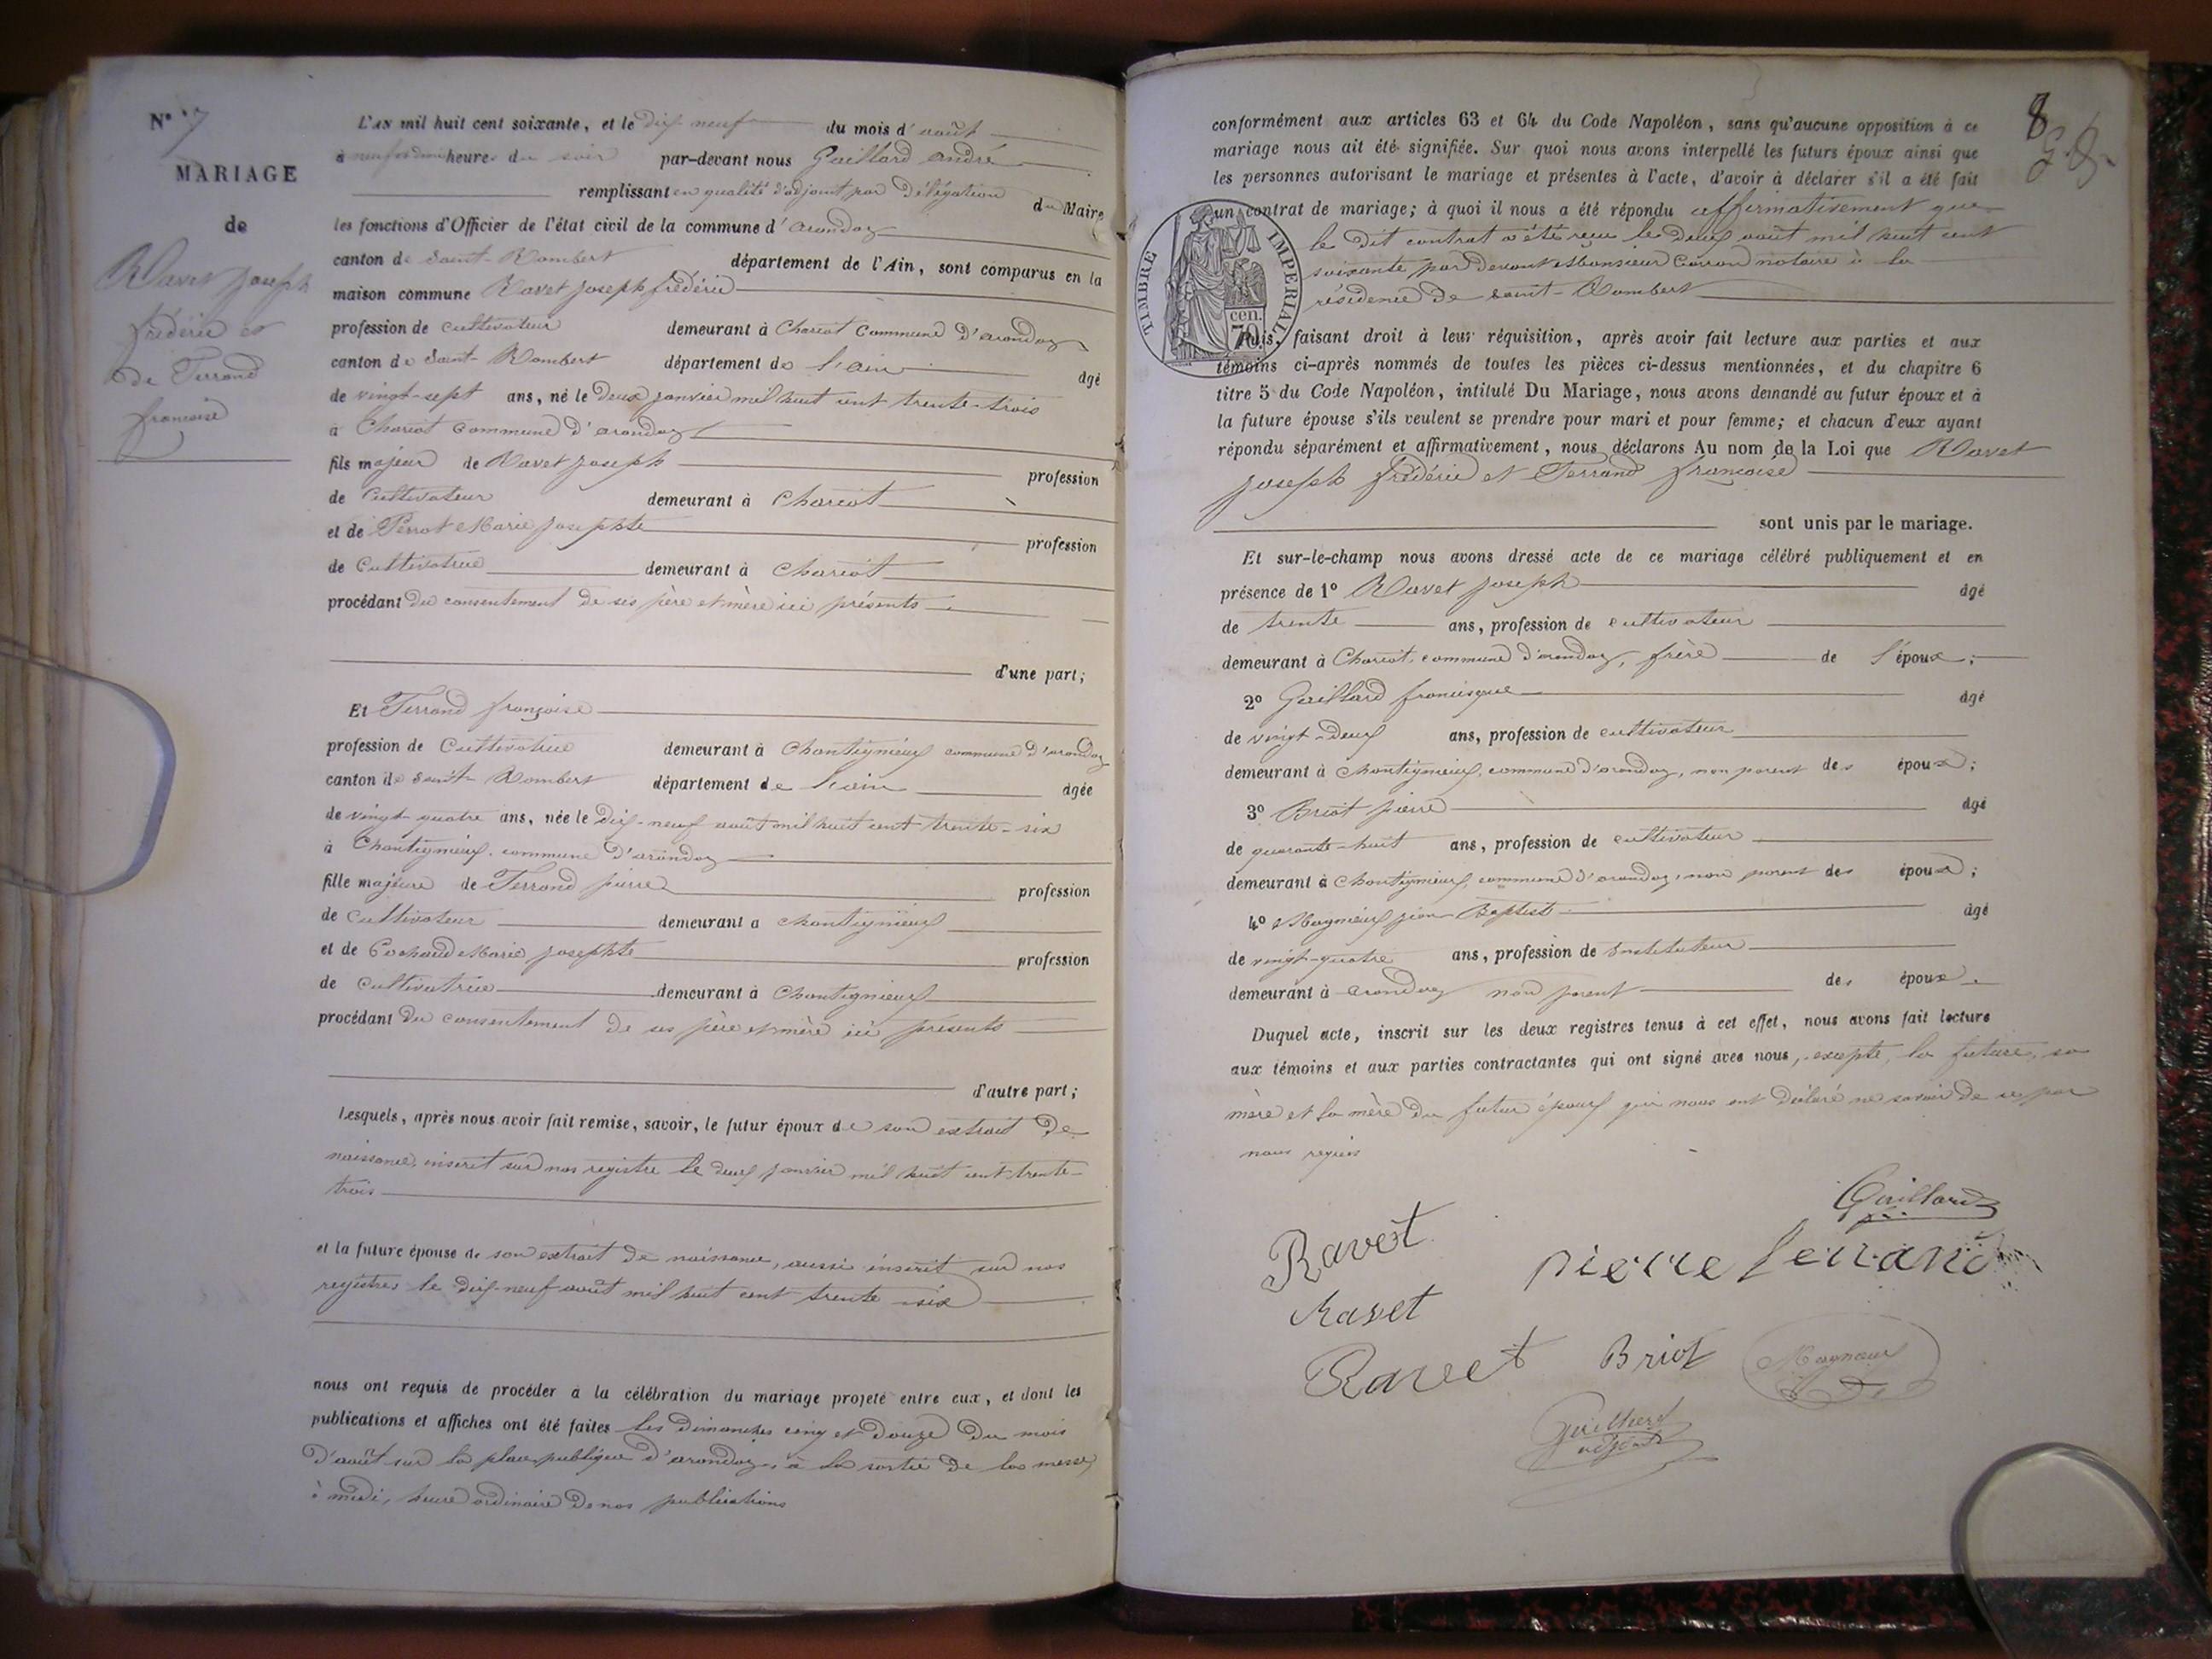 N° 7
MARIAGE
de
Ravet Joseph
frédéric et
de Ferrand
françoise
L'AN mil huit cent soixante, et le dix neuf du mois d'août
à neuf heures du soir par-devant nous Gaillard andré
remplissant en qualité d'adjoint par délégation du Maire
les fonctions d'Officier de l'état civil de la commune d'arandaz
canton de Saint-Rambert département de l'Ain, sont comparus en la
maison commune Ravet Joseph frédéric
profession de cultivateur demeurant à Charcot commune d'arandaz
canton de Saint-Rambert département de l'ain âgé
de vingt-sept ans, né le deux janvier mil huit cent trente-trois
à Charcot commune d'arandaz
fils majeur de Ravet Joseph profession
de cultivateur demeurant à Charcot
et de Perrot Marie Josephte profession
de Cultivatrice demeurant à Charcot
procédant du consentement de ses père et mère ici présents
d'une part;
Et Ferrand françoise
profession de Cultivatrice demeurant à Chantignieux commune d'arandaz
canton de Saint-Rambert département de l'ain âgée
de vingt-quatre ans, née le dix-neuf août mil huit cent trente-six
à Chantignieux commune d'arandaz
fille majeure de Ferrand pierre profession
de cultivateur demeurant à Chantignieux
et de Cochaud Marie Josephte profession
de cultivatrice demeurant à Chantignieux
procédant du consentement de ses père et mère ici présents
d'autre part;
Lesquels, après nous avoir fait remise, savoir, le futur époux de son extrait de
naissance, inscrit sur nos registre le deux janvier mil huit cent trente-
trois
et la future épouse de son extrait de naissance, aussi inscrit sur nos
registres le dix-neuf août mil huit cent trente-six
nous ont requis de procéder à la célébration du mariage projeté entre eux, et dont les
publications et affiches ont été faites les dimanches cinq et douze du mois
d'août sur la place publique d'arandaz, à la sortie de la messe,
à midi, heure ordinaire de nos publications
8
conformément aux articles 63 et 64 du Code Napoléon, sans qu'aucune opposition à ce
mariage nous ait été signifiée. Sur quoi nous avons interpellé les futurs époux ainsi que
les personnes autorisant le mariage et présentes à l'acte, d'avoir à déclarer s'il a été fait
un contrat de mariage; à quoi il nous a été répondu affirmativement que
le dit contrat a été reçu le deux août mil huit cent
soixante par devant Monsieur notaire à la
résidence de Saint-Rambert
TIMBRE IMPERIAL
70 cen.
Puis, faisant droit à leur réquisition, après avoir fait lecture aux parties et aux
témoins ci-après nommés de toutes les pièces ci-dessus mentionnées, et du chapitre 6
titre 5 du Code Napoléon, intitulé Du Mariage, nous avons demandé au futur époux et à
la future épouse s'ils veulent se prendre pour mari et pour femme; et chacun d'eux ayant
répondu séparément et affirmativement, nous déclarons Au nom de la Loi que Ravet
Joseph frédéric et Ferrand françoise
sont unis par le mariage.
Et sur-le-champ nous avons dressé acte de ce mariage célébré publiquement et en
présence de 1° Ravet Joseph âgé
de trente ans, profession de cultivateur
demeurant à Charcot, commune d'arandaz, frère de l'époux;
2° Gaillard francisque âgé
de vingt-deux ans, profession de cultivateur
demeurant à Chantignieux, commune d'arandaz, non parent des époux;
3° Briot pierre âgé
de quarante-huit ans, profession de cultivateur
demeurant à Chantignieux, commune d'arandaz, non parent des époux;
4° Magnieux jean Baptiste âgé
de vingt-quatre ans, profession de instituteur
demeurant à arandaz non parent des époux.
Duquel acte, inscrit sur les deux registres tenus à cet effet, nous avons fait lecture
aux témoins et aux parties contractantes qui ont signé avec nous, excepté, la future, sa
mère et la mère du futur époux qui nous ont déclaré ne savoir de ce par
nous requis
Gaillard
Ravet
pierre ferrand
Ravet
Ravet Briot Magnieux
Gaillard
adjoint